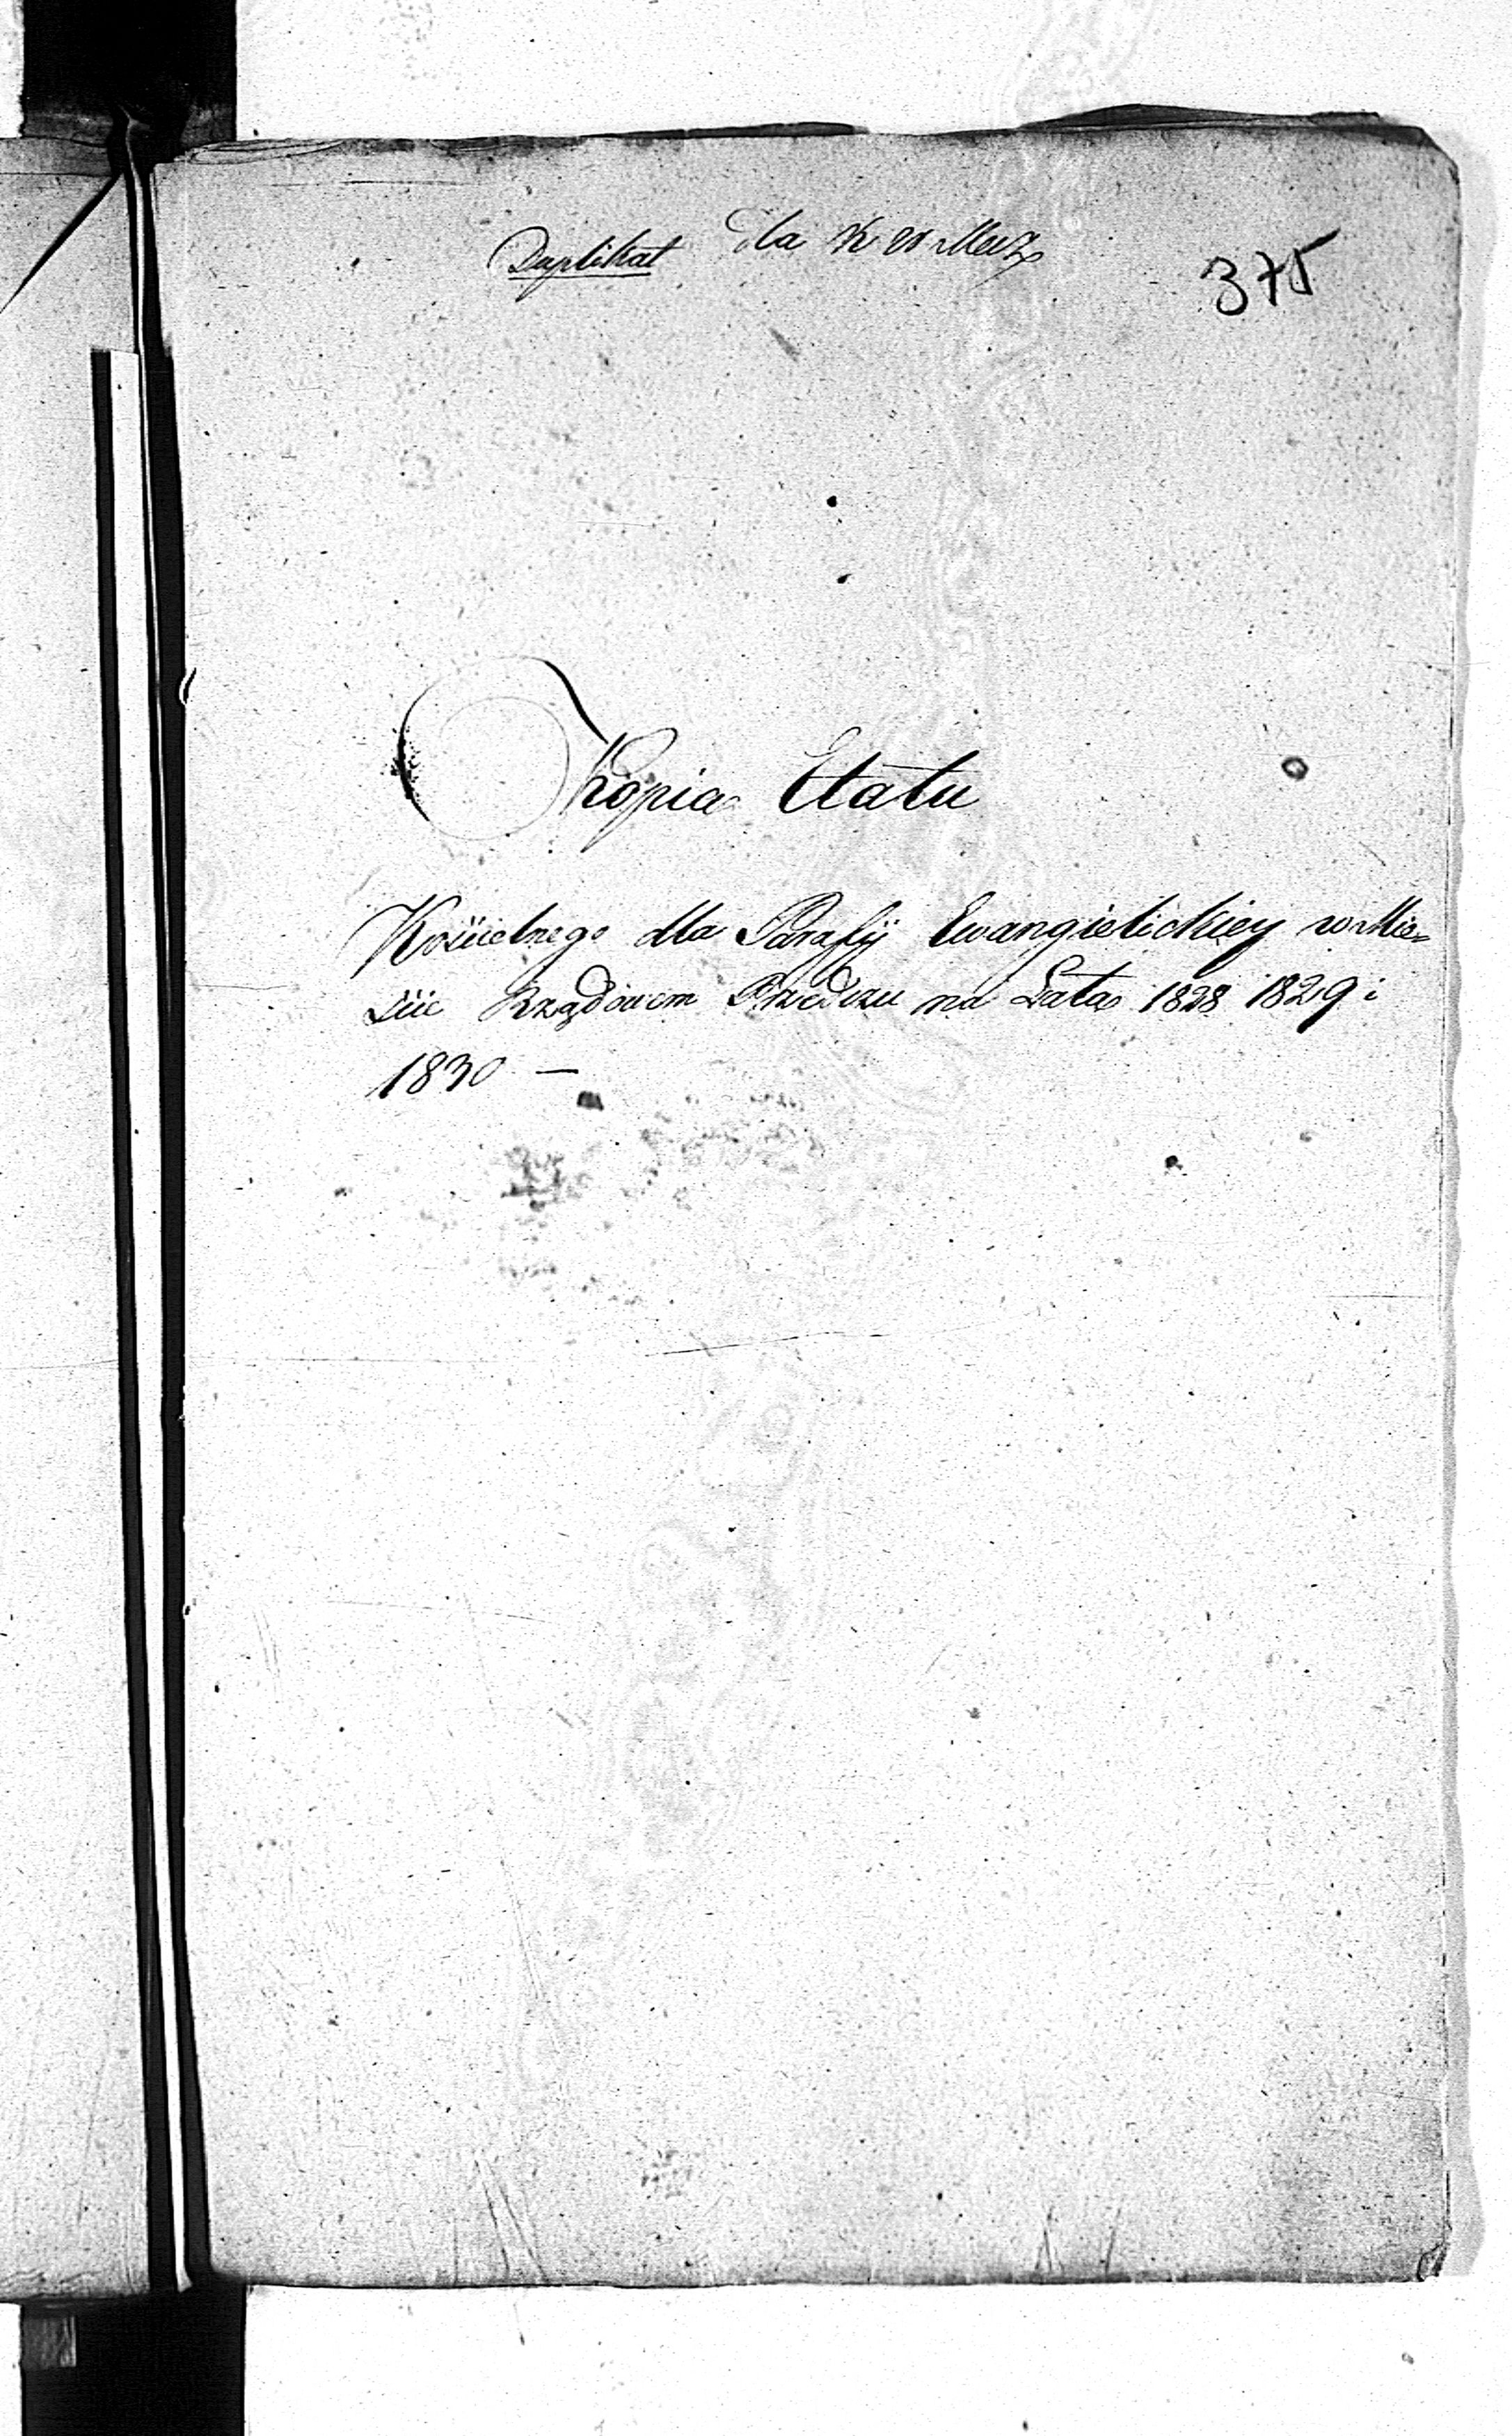 Duplikat dla K W Maz
375
Kopia Etatu
Kościelnego dla Parafij Ewangielickiey w Mie=
ście Rządowem Przedczu na Lata 1828 1829 i
1830 —